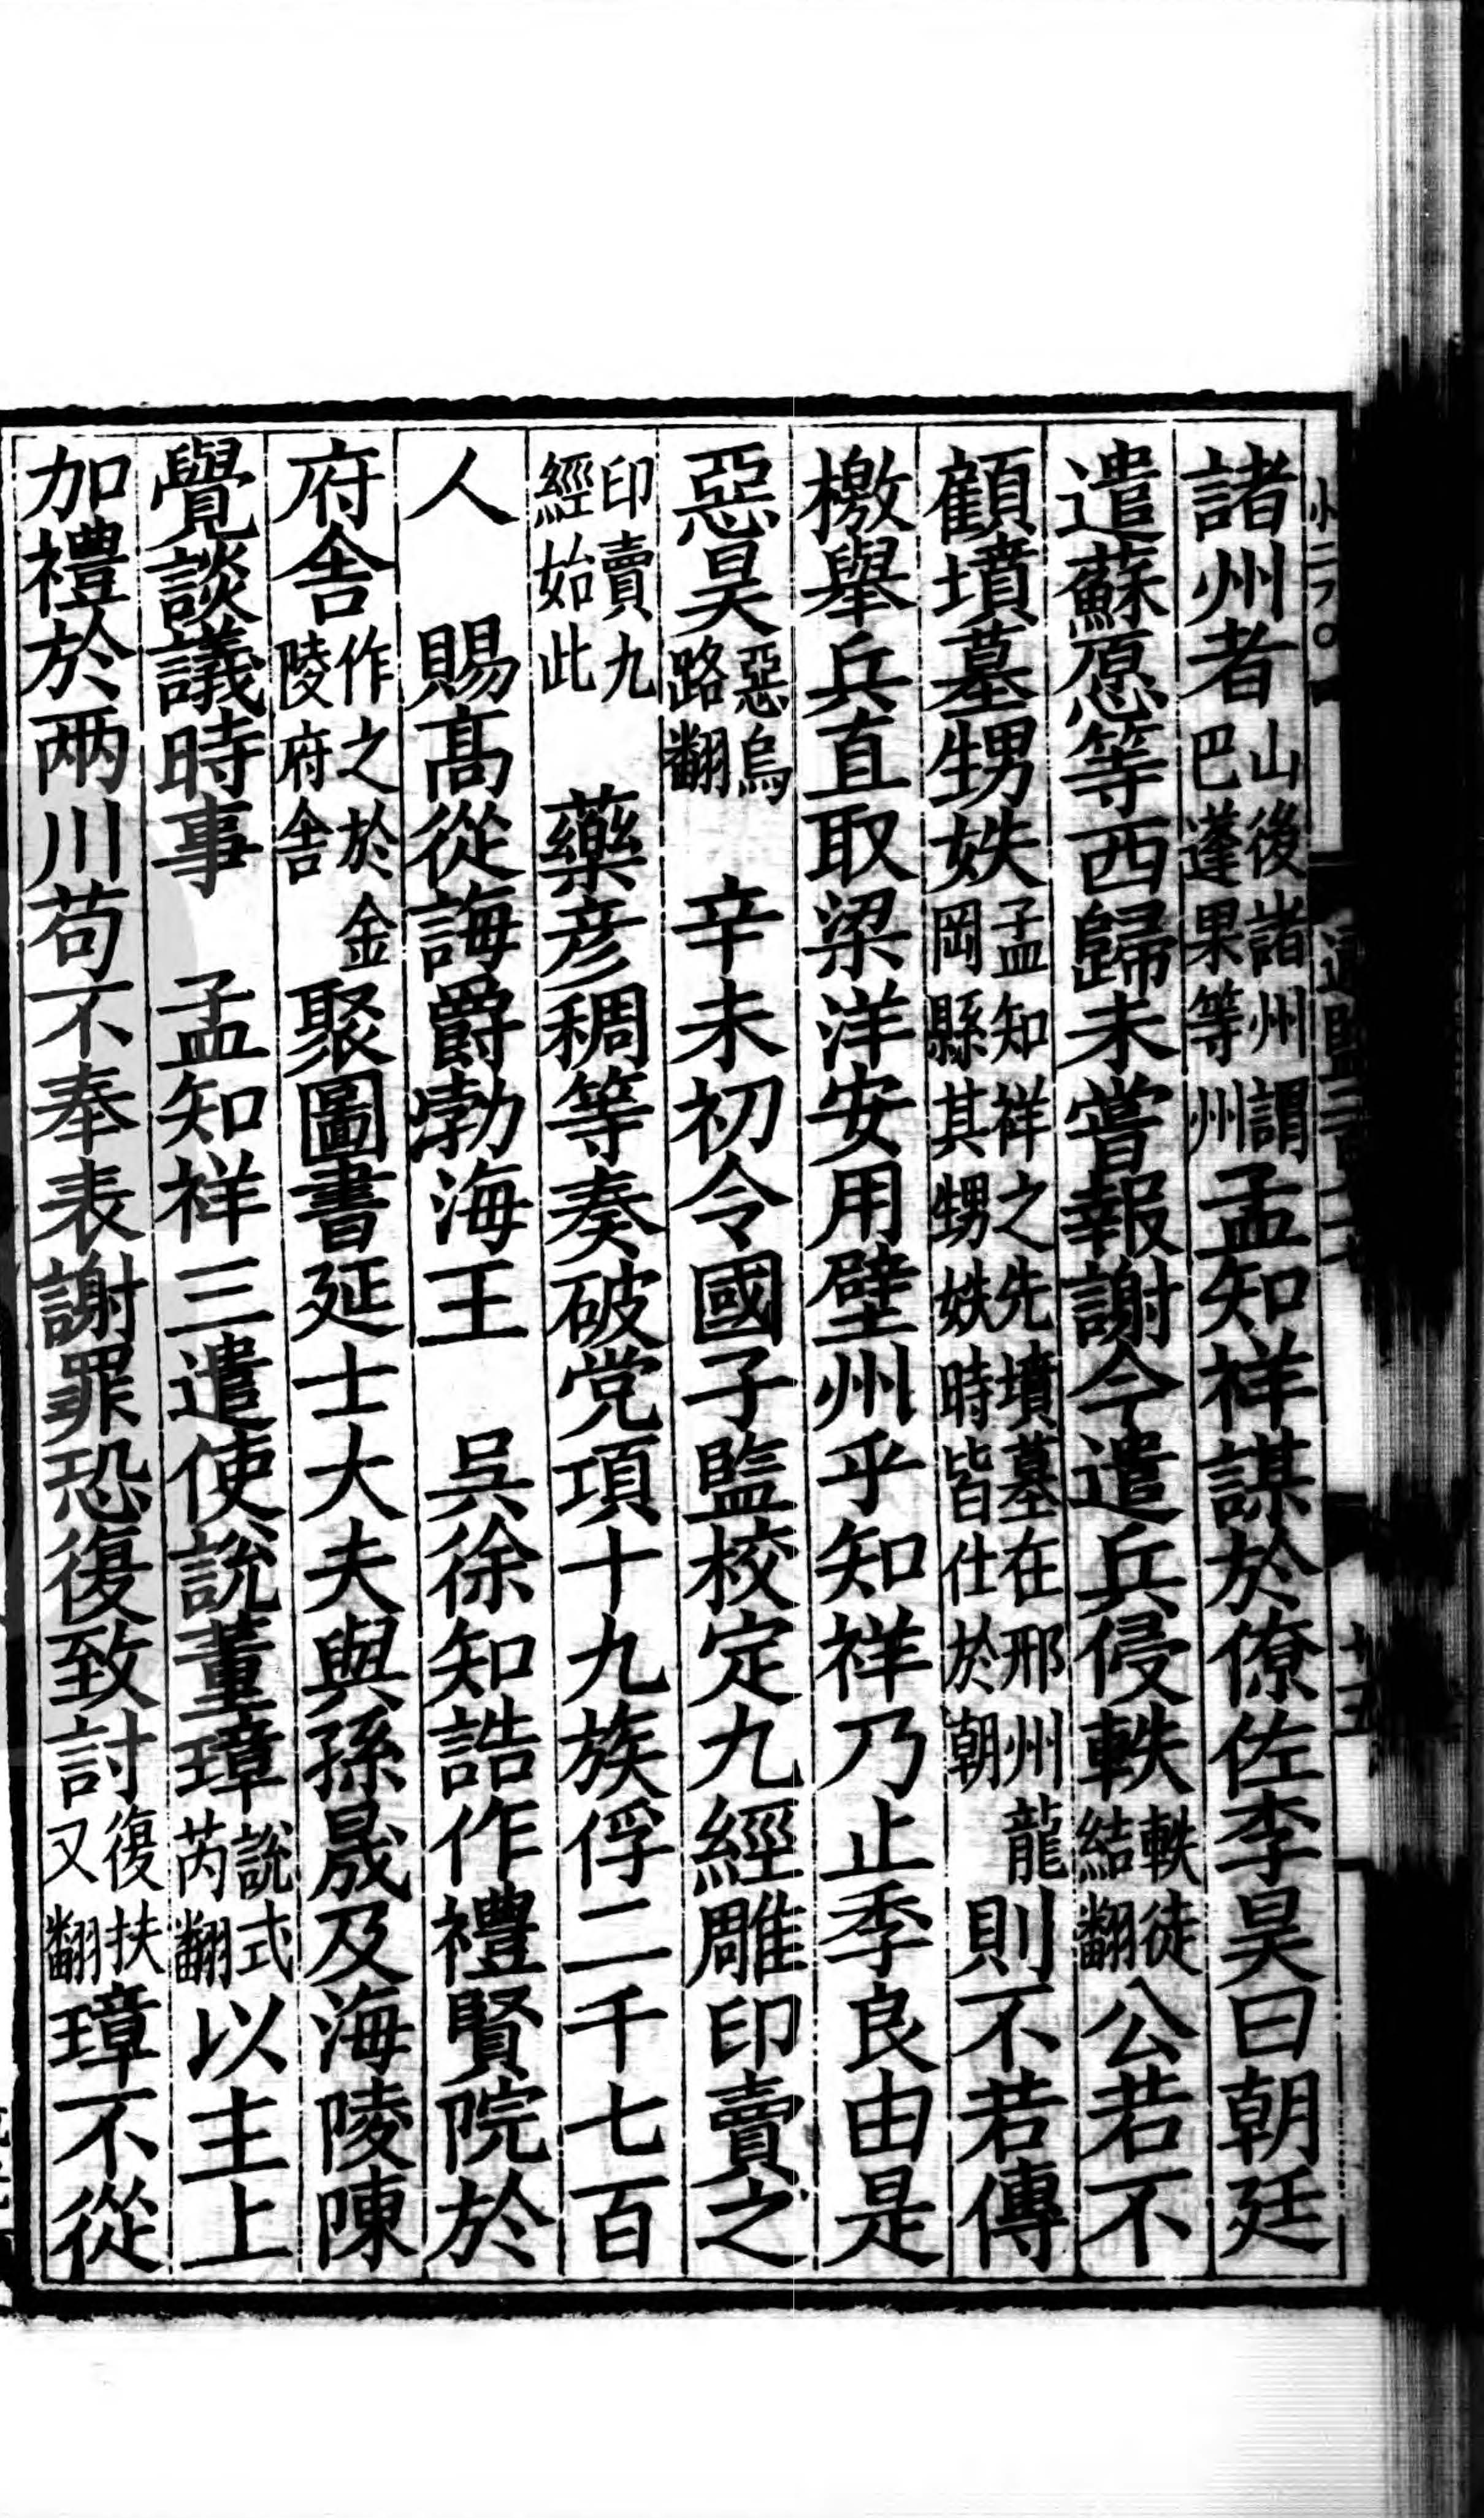 諸州者山後諸州謂巴蓬果等州孟知祥謀於僚佐李昊曰朝廷
遣蘇愿等西歸未嘗報謝今遣兵侵軼軼徒結翻公若不
顧墳墓甥姪孟知祥之先墳墓在邢州龍岡縣其甥姪時皆仕於朝則不若傳
檄舉兵直取梁洋安用壁州乎知祥乃止季良由是
惡昊惡烏路翻 辛未初令國子監校定九經雕印賣之
印賣九經始此 藥彥稠等奏破党項十九族俘二千七百
人 賜高從誨爵勃海王 吳徐知誥作禮賢院於
府舍作之於金陵府舍聚圖書延士大夫與孫晟及海陵陳
覺談議時事 孟知祥三遣使說董璋說式芮翻以主上
加禮於兩川苟不奉表謝罪恐復致討復扶又翻璋不從